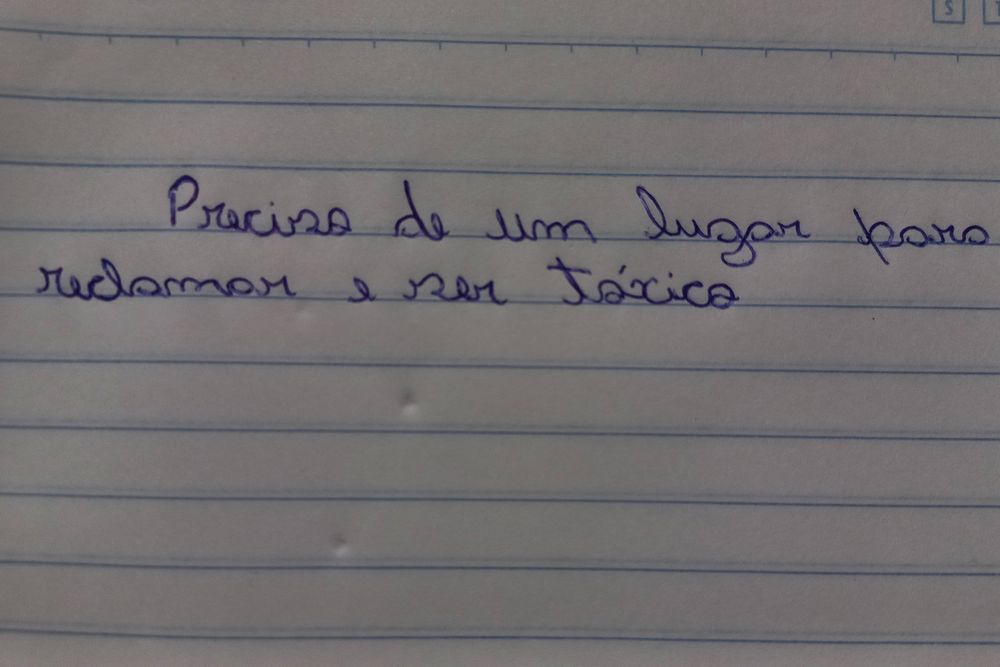 S
Preciso de um lugar para
reclamar e ser tóxica